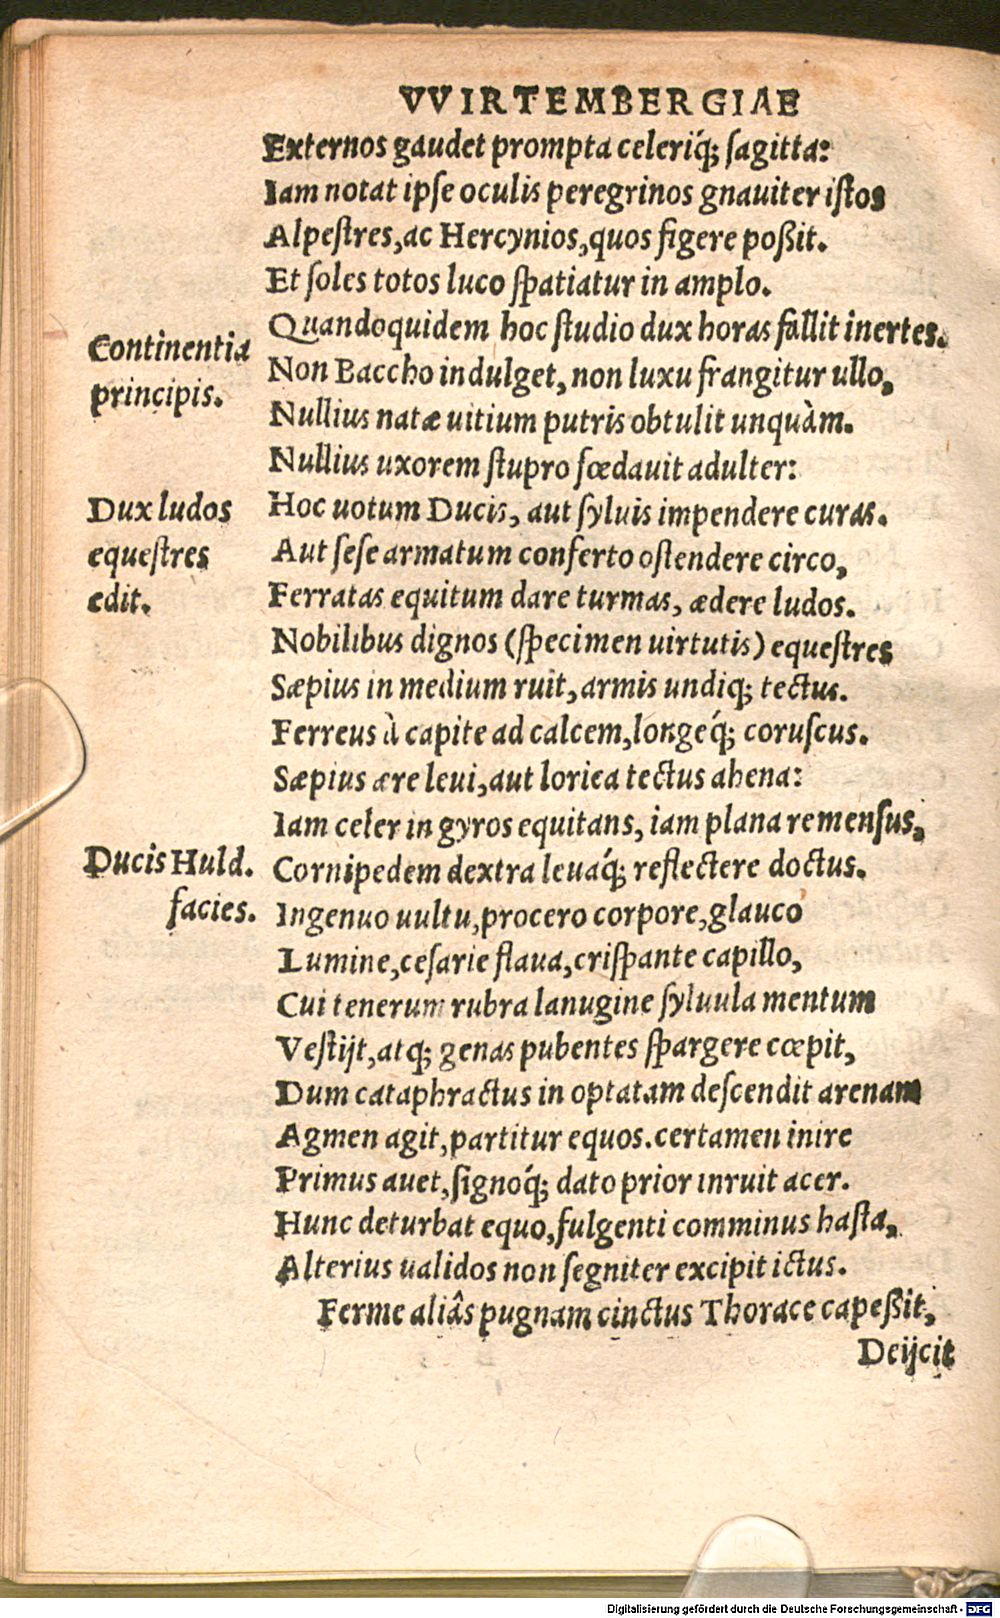 VVIRTEMBERGIAE
Externos gaudet prompta celeriq́; ſagitta:
Iam notat ipſe oculis peregrinos gnauiter iſtos
Alpeſtres, ac Hercynios, quos figere poßit.
Et ſoles totos luco ſpatiatur in amplo.
Quandoquidem hoc ſtudio dux horas fallit inertes.
Continentia
principis.
Non Baccho indulget, non luxu frangitur ullo,
Nullius natæ uitium putris obtulit unquàm.
Nullius uxorem ſtupro fœdauit adulter:
Dux ludos
equeſtres
edit.
Hoc uotum Ducis, aut ſyluis impendere curas.
Aut ſeſe armatum conferto oſtendere circo,
Ferratas equitum dare turmas, ædere ludos.
Nobilibus dignos (ſpecimen uirtutis) equeſtres
Sæpius in medium ruit, armis undiq; tectus.
Ferreus à capite ad calcem, longeq́; coruſcus.
Sæpius ære leui, aut lorica tectus ahena:
Iam celer in gyros equitans, iam plana remenſus,
Ducis Huld.
facies.
Cornipedem dextra leuaq́; reflectere doctus.
Ingenuo uultu, procero corpore, glauco
Lumine, ceſarie flaua, criſpante capillo,
Cui tenerum rubra lanugine ſyluula mentum
Veſtijt, atq; genas pubentes ſpargere cœpit,
Dum cataphractus in optatam deſcendit arenam
Agmen agit, partitur equos. certamen inire
Primus auet, ſignoq́; dato prior inruit acer.
Hunc deturbat equo, fulgenti comminus haſta,
Alterius ualidos non ſegniter excipit ictus.
Ferme aliâs pugnam cinctus Thorace capeßit,
Deijcit
Digitalisierung gefördert durch die Deutsche Forschungsgemeinschaft - DFG